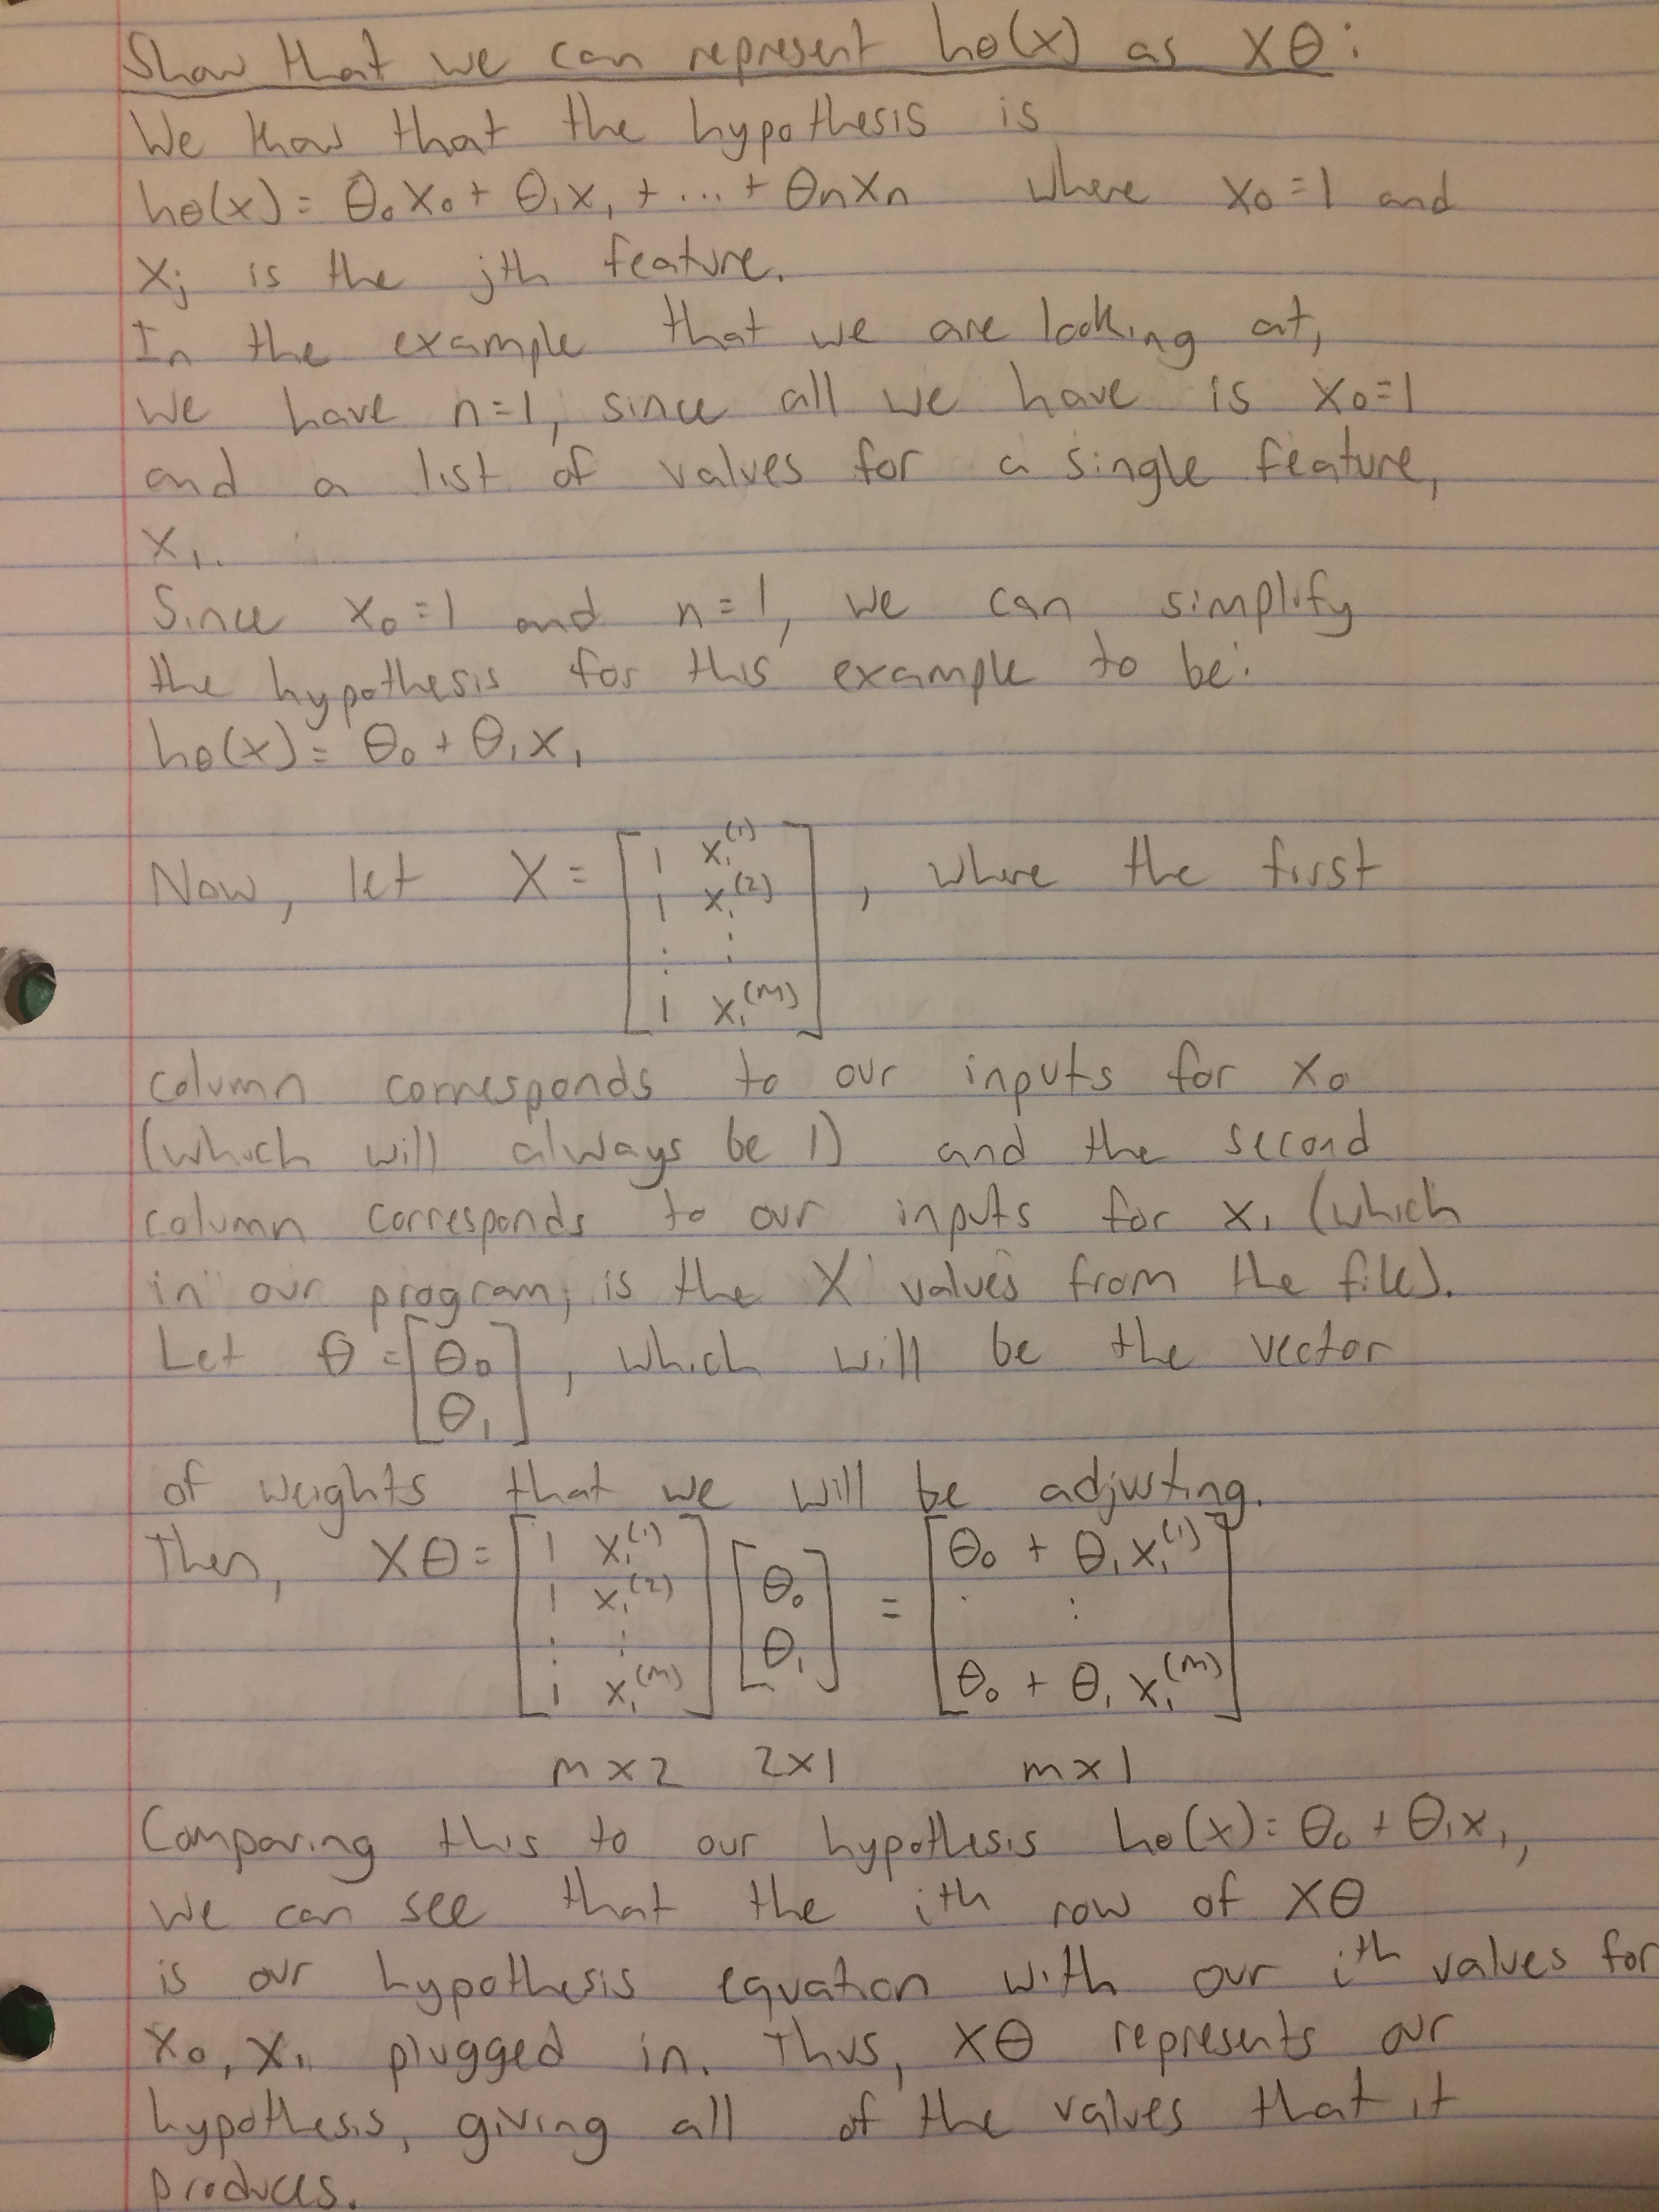 Show that we can represent hθ(x) as Xθ:
We know that the hypothesis is
hθ(x) = θ₀x₀ + θ₁x₁ + ... + θₙxₙ where x₀ = 1 and
xⱼ is the jth feature.
In the example that we are looking at,
we have n=1, since all we have is x₀=1
and a list of values for a single feature,
x₁.
Since x₀=1 and n=1, we can simplify
the hypothesis for this example to be:
hθ(x) = θ₀ + θ₁x₁
Now, let X = [1 x₁⁽¹⁾
1 x₁⁽²⁾
⋮ ⋮
1 x₁⁽ᵐ⁾], where the first
column corresponds to our inputs for x₀
(which will always be 1) and the second
column corresponds to our inputs for x₁ (which
in our program, is the X values from the file).
Let θ = [θ₀
θ₁], which will be the vector
of weights that we will be adjusting.
Then, Xθ = [1 x₁⁽¹⁾
1 x₁⁽²⁾
⋮ ⋮
1 x₁⁽ᵐ⁾] [θ₀
θ₁] = [θ₀ + θ₁x₁⁽¹⁾
⋮ ⋮
θ₀ + θ₁x₁⁽ᵐ⁾]
m x 2 2x1 m x 1
Comparing this to our hypothesis hθ(x) = θ₀ + θ₁x₁,
we can see that the ith row of Xθ
is our hypothesis equation with our ith values for
x₀, x₁, plugged in. Thus, Xθ represents our
hypothesis, giving all of the values that it
produces.